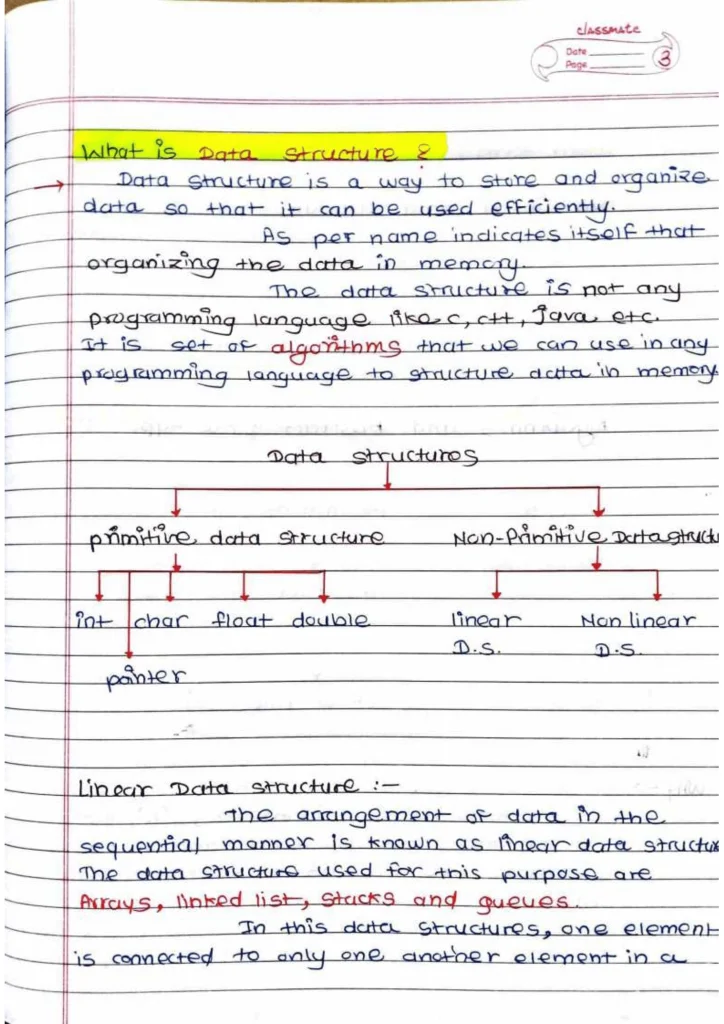 classmate
Date
Page 3
What is Data structure ?
Data structure is a way to store and organize
data so that it can be used efficiently.
As per name indicates itself that
organizing the data in memory.
The data structure is not any
programming language like c, c++, Java etc.
It is set of algorithms that we can use in any
programming language to structure data in memory
Data structures
primitive data structure Non-Primitive Datastructu
int char float double linear Non linear
D.S. D.S.
pointer
Linear Data structure :-
The arrangement of data in the
sequential manner is known as linear data structur
The data structure used for this purpose are
Arrays, linked list, stacks and queues.
In this data structures, one element
is connected to only one another element in a